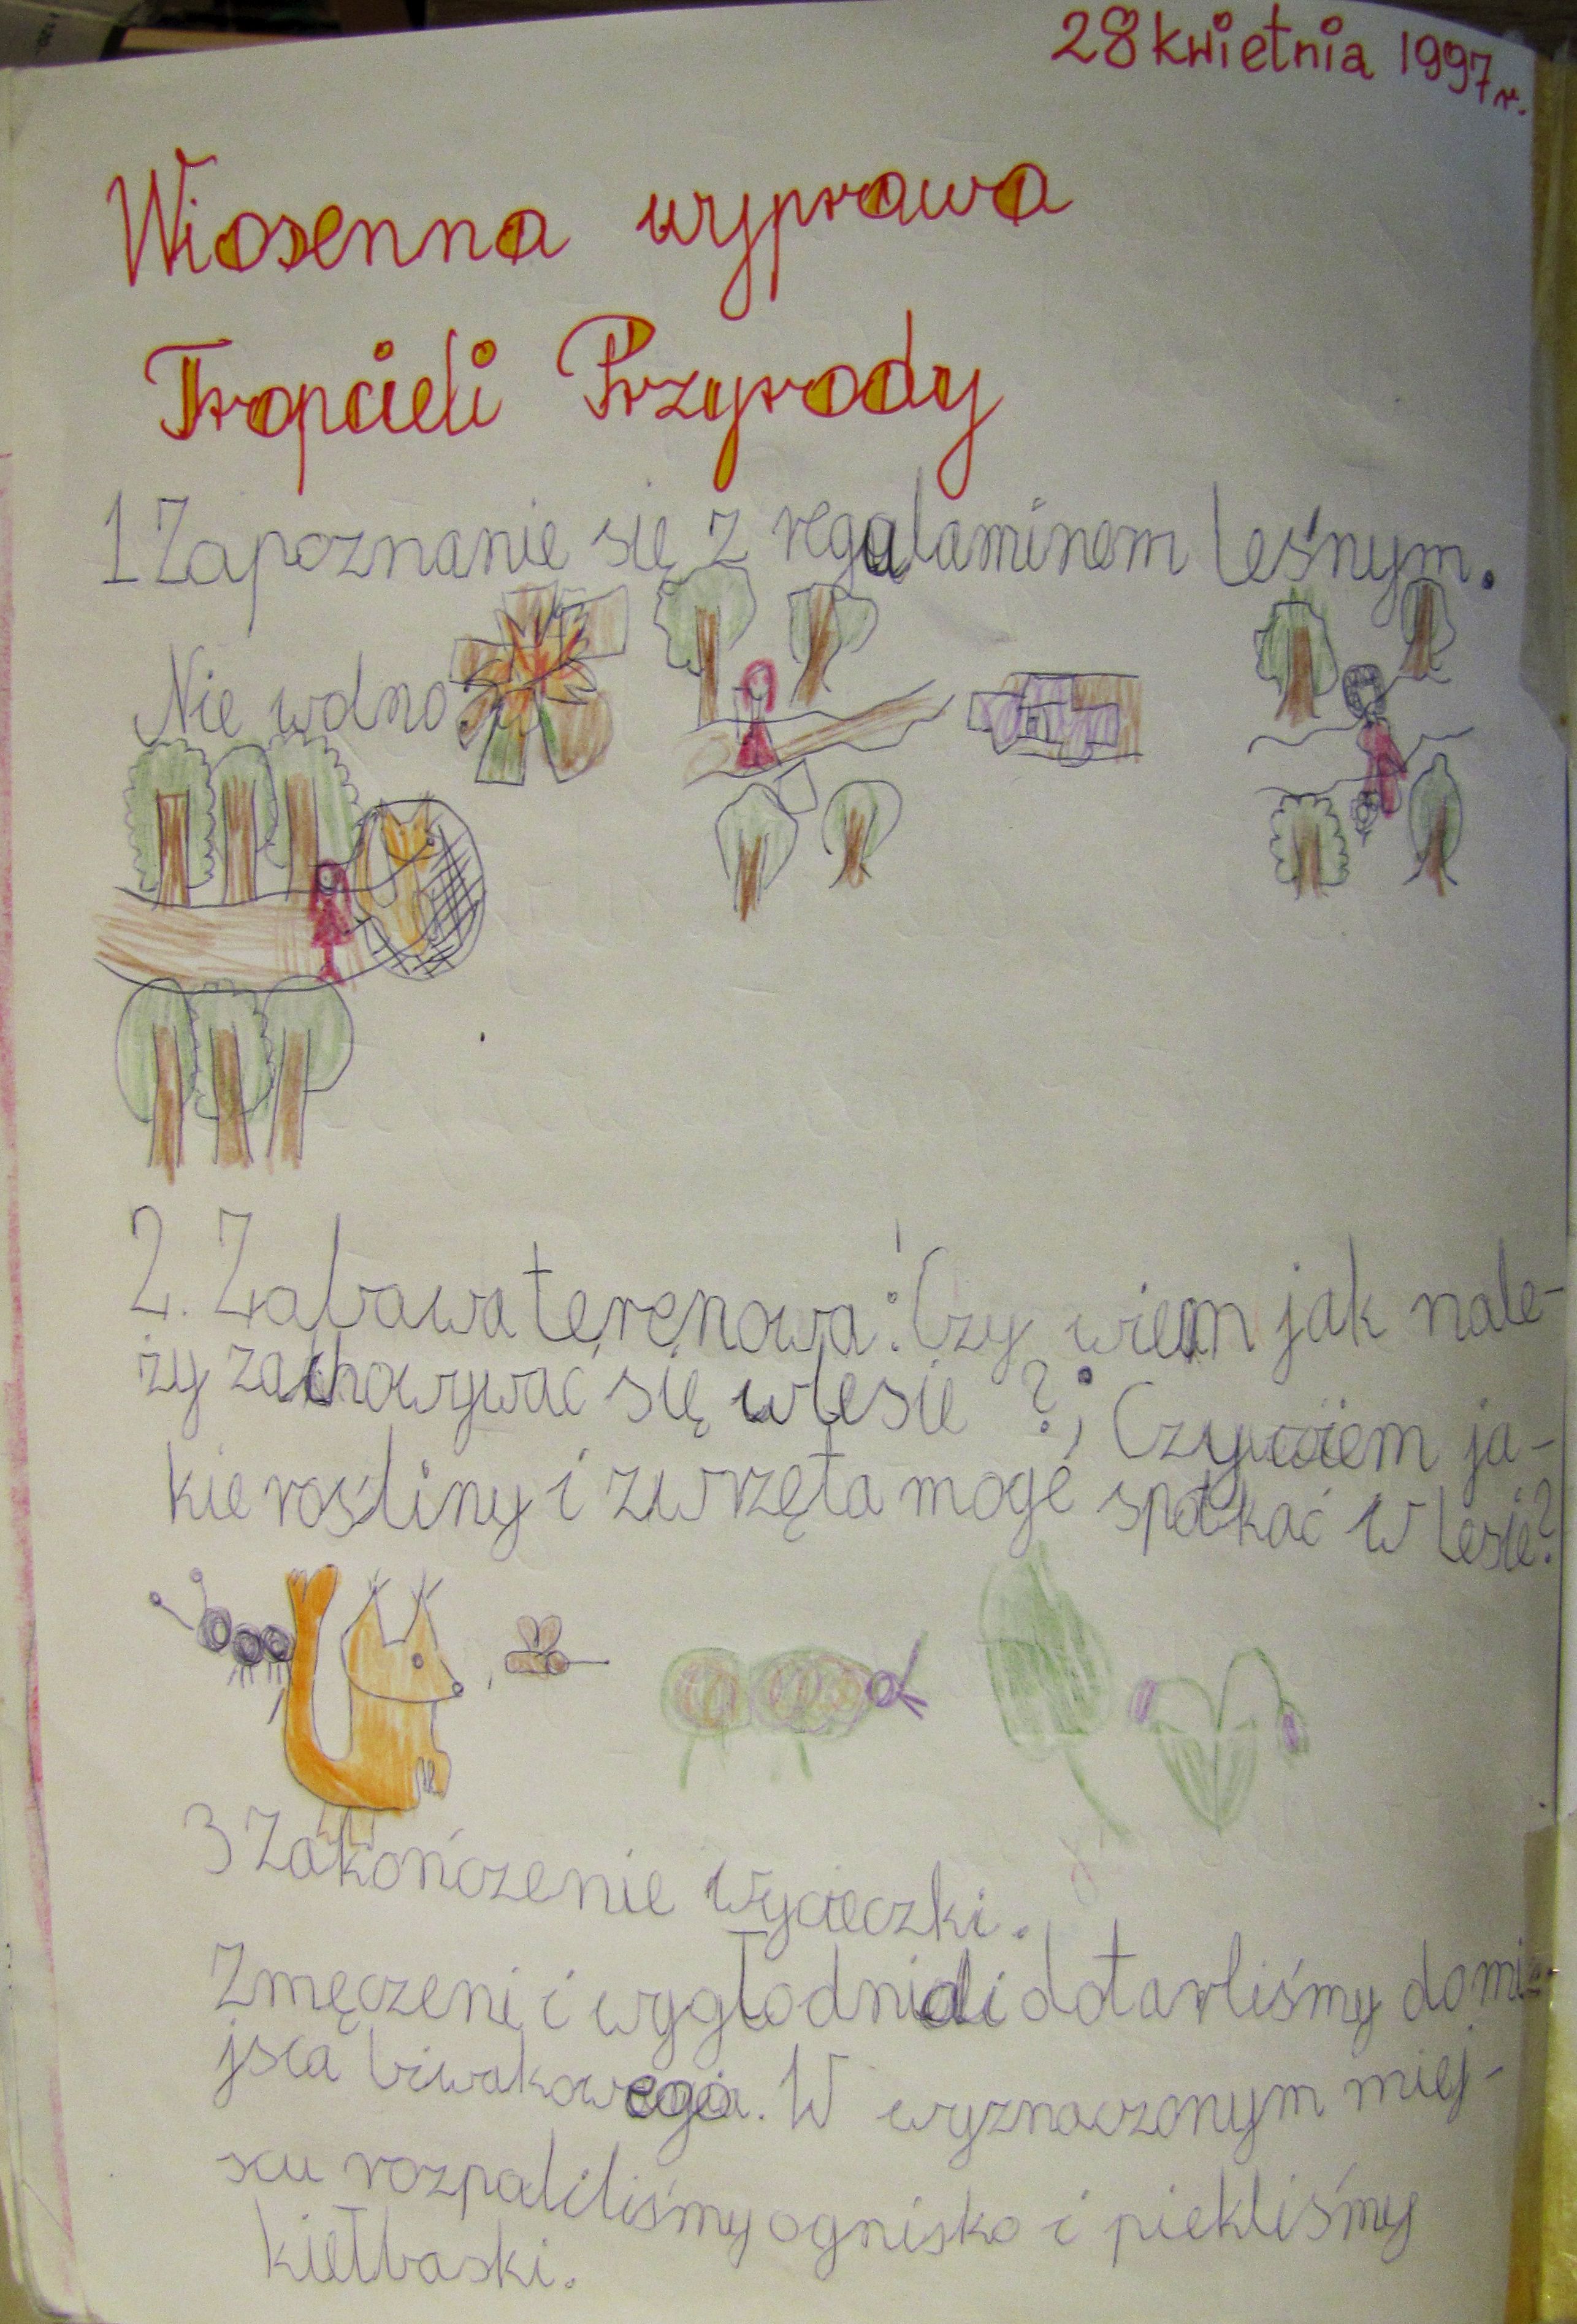 28 kwietnia 1997 r.
Wiosenna wyprawa
Tropicieli Przyrody
1 Zapoznanie się z regulaminem leśnym.
Nie wolno
2. Zabawa terenowa: Czy wiem jak nale-
ży zachowywać się w lesie?; Czy wiem ja-
kie rosliny i zwrzęta mogę spotkać w lesie?
3 Zakończenie wycieczki.
Zmęczeni i wygłodniali dotarliśmy do mi-
jsca biwakowego. W wyznaczonym miej-
scu rozpaliliśmy ognisko i piekliśmy
kiełbaski.